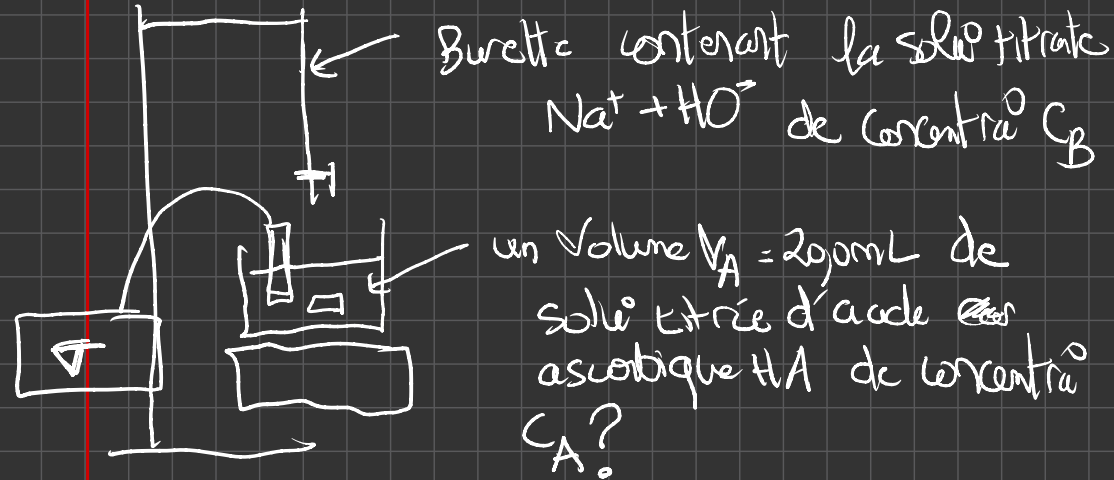 Burette contenant la solu° titrate
Na⁺ + HO⁻ de concentra° C_B
un Volume V_A = 20,0mL de
solu° titrée d'acide
ascorbique HA de concentra°
C_A ?
σ